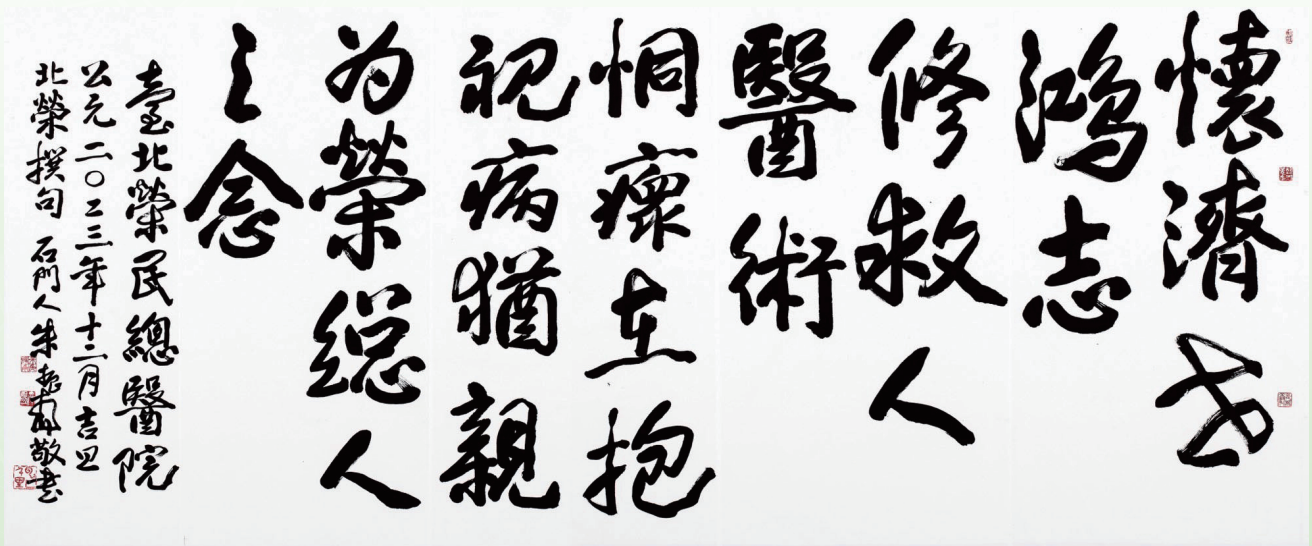 懷濟世
鴻志
修救人
醫術
恫瘝在抱
視病猶親
為榮總人
之念
臺北榮民總醫院
公元二〇二三年十二月吉旦
北榮撰句 石門人朱振南敬書